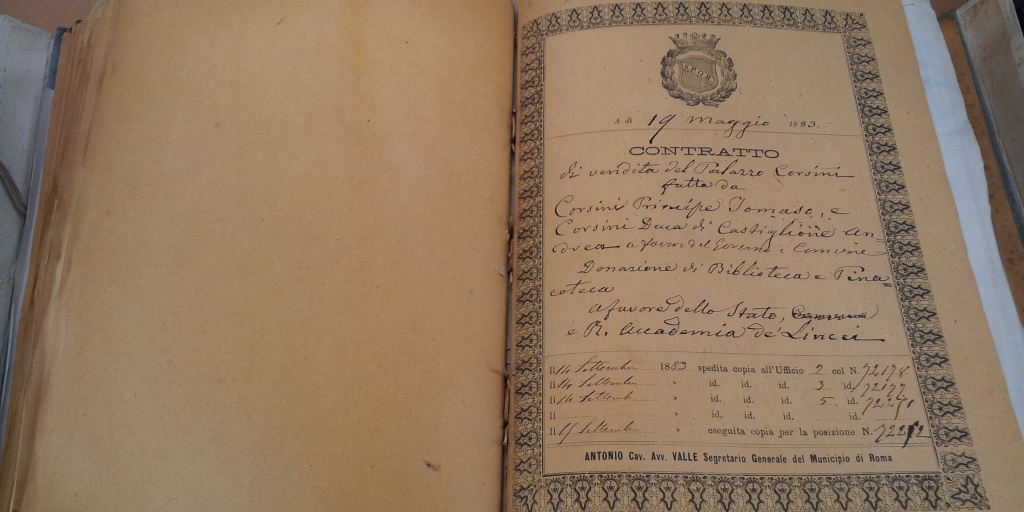 S P Q R
A dì 19 Maggio 1883.
CONTRATTO
di vendita del Palazzo Corsini
fatta da
Corsini Principe Tomaso, e
Corsini Duca di Castiglione An-
drea a favore del Governo e Comune
Donazione di Biblioteca e Pina-
coteca
a favore dello Stato, Comune
e R. Accademia de' Lincei
Il 14 Settembre 1883 spedita copia all'Ufficio 2 col N. 72178
Il 14 Settembre » id. id. id. 3 id. 72177
Il 14 Settemb » id. id. id. 5. id. 72271
Il » id. id. id. id.
Il Settemb » eseguita copia per la posizione N. 72272
ANTONIO Cav. Avv. VALLE Segretario Generale del Municipio di Roma